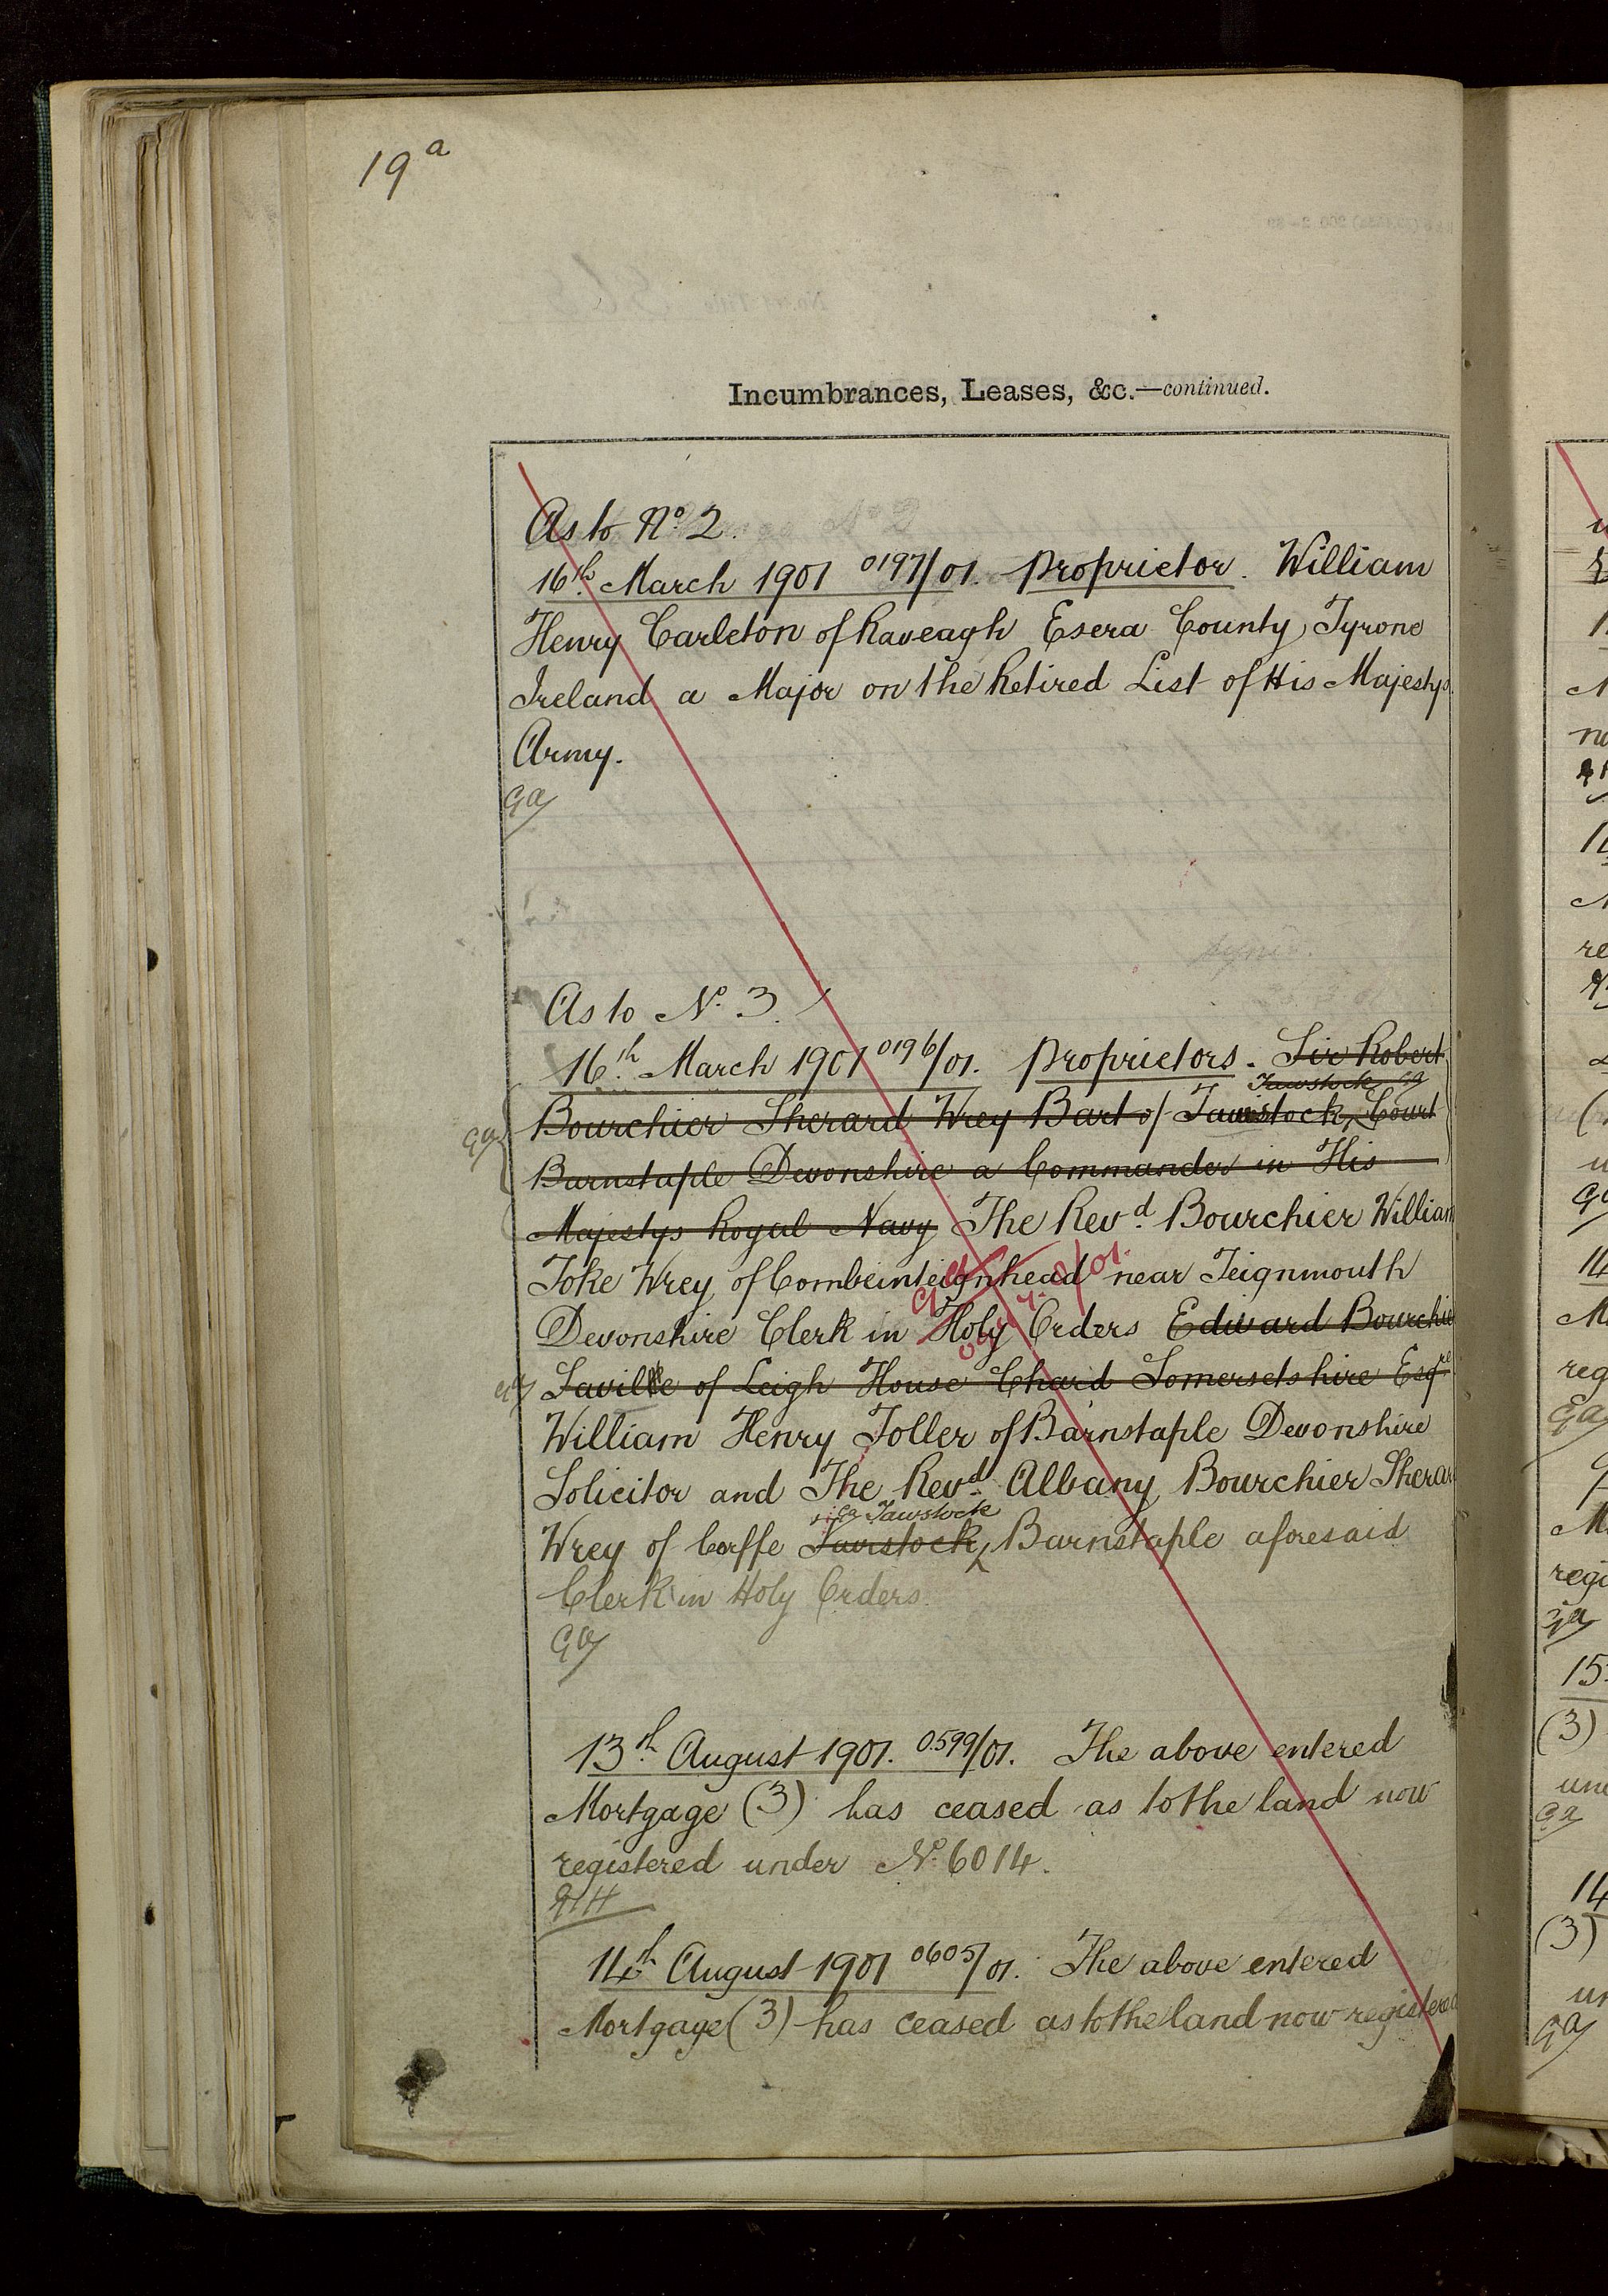 19 a
Incumbrances, Leases, &c.—continued.
As to No. 2.
16th March 1901 0197/01. Proprietor. William
Henry Carleton of Raveagh Esera County, Tyrone
Ireland a Major on the Retired List of His Majestys
Army.
Ga
As to No. 3.
16th March 1901 0196/01. Proprietors. Sir Robert
Tawstock Ga
Bourchier Sherard Wrey Bart of Tavistock, Court
Barnstaple Devonshire a Commander in His
Majestys Royal Navy The Revd. Bourchier William
Toke Wrey, of Combeinteignhead near Teignmouth
Devonshire Clerk in Holy Orders Edward Bourchier
Saville of Leigh House Chard Somersetshire Esqre
William Henry Toller of Barnstaple Devonshire
Solicitor and The Revd. Albany Bourchier Sherard
Ga Tawstock
Wrey of Corffe Tavistock, Barnstaple aforesaid
Clerk in Holy Orders.
Ga
13th August 1901. 0599/01. The above entered
Mortgage (3) has ceased as to the land now
registered under No. 6014.
14th August 1901 0605/01. The above entered
Mortgage (3) has ceased as to the land now registered